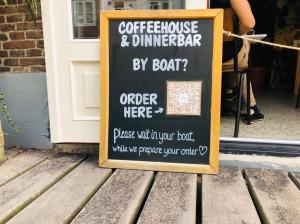 COFFEEHOUSE
& DINNERBAR
BY BOAT?
ORDER
HERE →
Please wait in your boat,
while we prepare your order ♡